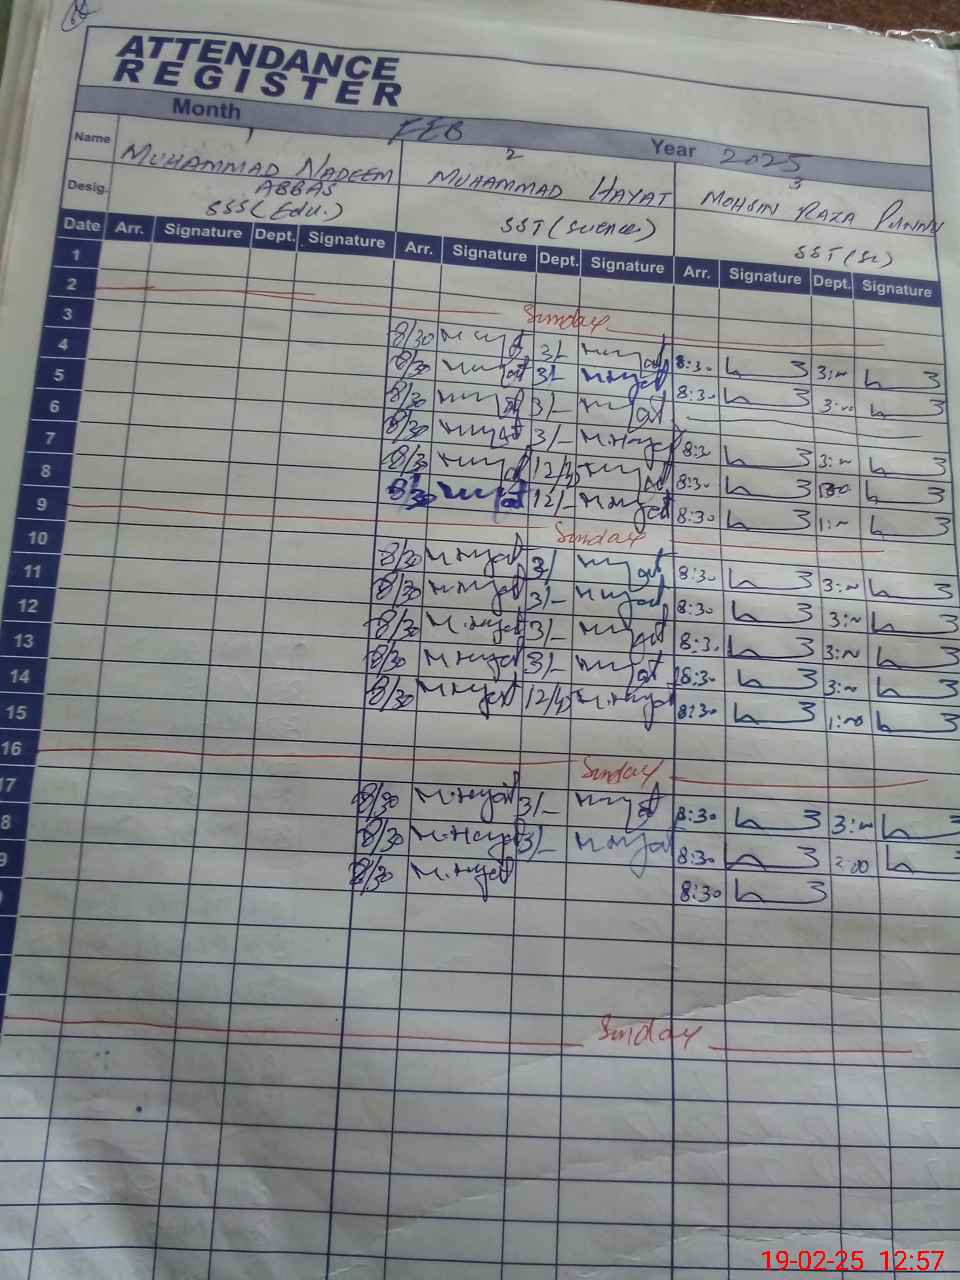 ATTENDANCE
REGISTER
Month FEB Year 2025
1 2 3
Name MUHAMMAD NADEEM ABBAS MUHAMMAD HAYAT MOHSIN RAZA PANNU
Desig. SSS(Edu.) SST(Science) SST(Sc)
Date Arr. Signature Dept. Signature Arr. Signature Dept. Signature Arr. Signature Dept. Signature
1
2 Sunday
3 8/30 M.Hayat 3/- M.Hayat 8:30 3:00
4 8/30 M.Hayat 3/- M.Hayat 8:30 3:00
5 8/30 M.Hayat 3/- M.Hayat
6 8/30 M.Hayat 3/- M.Hayat 8:30 3:00
7 8/30 M.Hayat 12/45 M.Hayat 8:30
8 8/30 M.Hayat 12/- M.Hayat 8:30 1:00
9 Sunday
10 8/30 M.Hayat 3/ M.Hayat 8:30 3:00
11 8/30 M.Hayat 3/- M.Hayat 8:30 3:00
12 8/30 M.Hayat 3/- M.Hayat 8:30 3:00
13 8/30 M.Hayat 3/- M.Hayat 8:30 3:00
14 8/30 M.Hayat 12/45 M.Hayat 8:30 1:00
15
16 Sunday
17 8/30 M.Hayat 3/- M.Hayat 8:30 3:00
8 8/30 M.Hayat 3/- M.Hayat 8:30 2:00
9 8/30 M.Hayat 8:30
Sunday
19-02-25 12:57